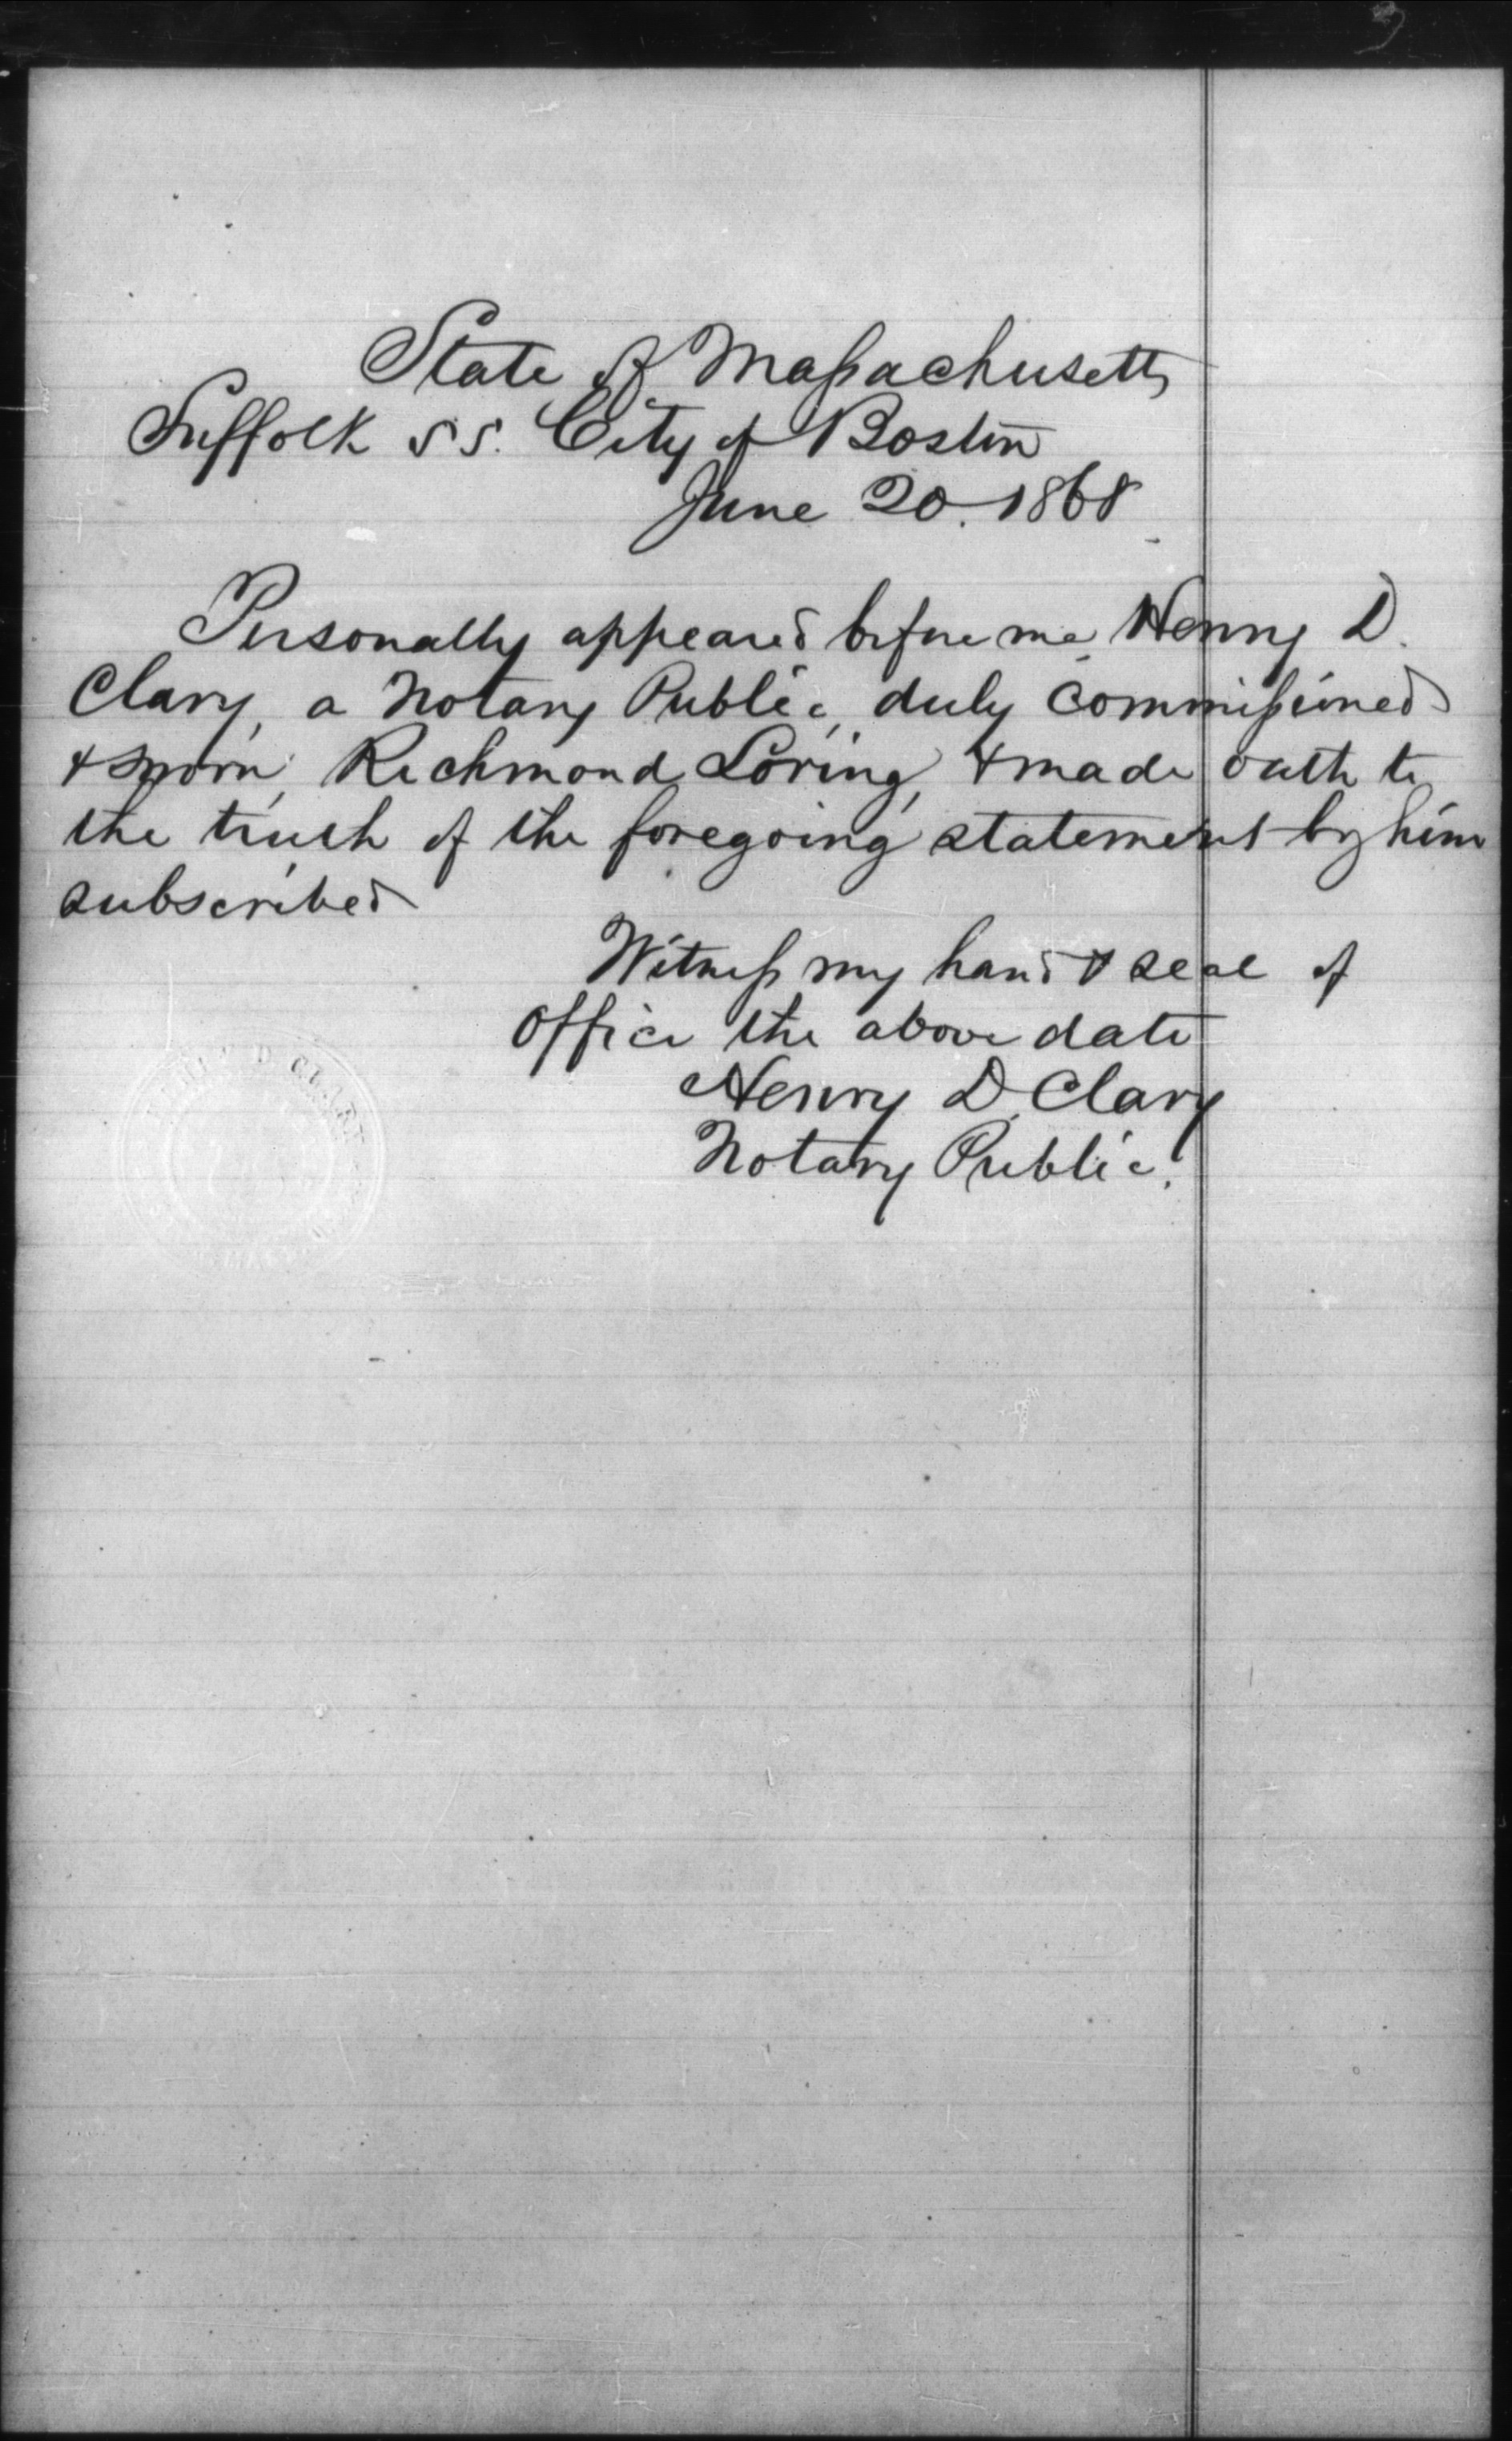 State of Massachusetts
Suffolk SS. City of Boston
June 20. 1868
Personally appeared before me, Henry D.
Clary, a Notary Public, duly commissioned
& sworn, Richmond Loring, & made oath to
the truth of the foregoing statement by him
subscribed
Witness my hand & seal of
Office the above date
Henry D. Clary
Notary Public.